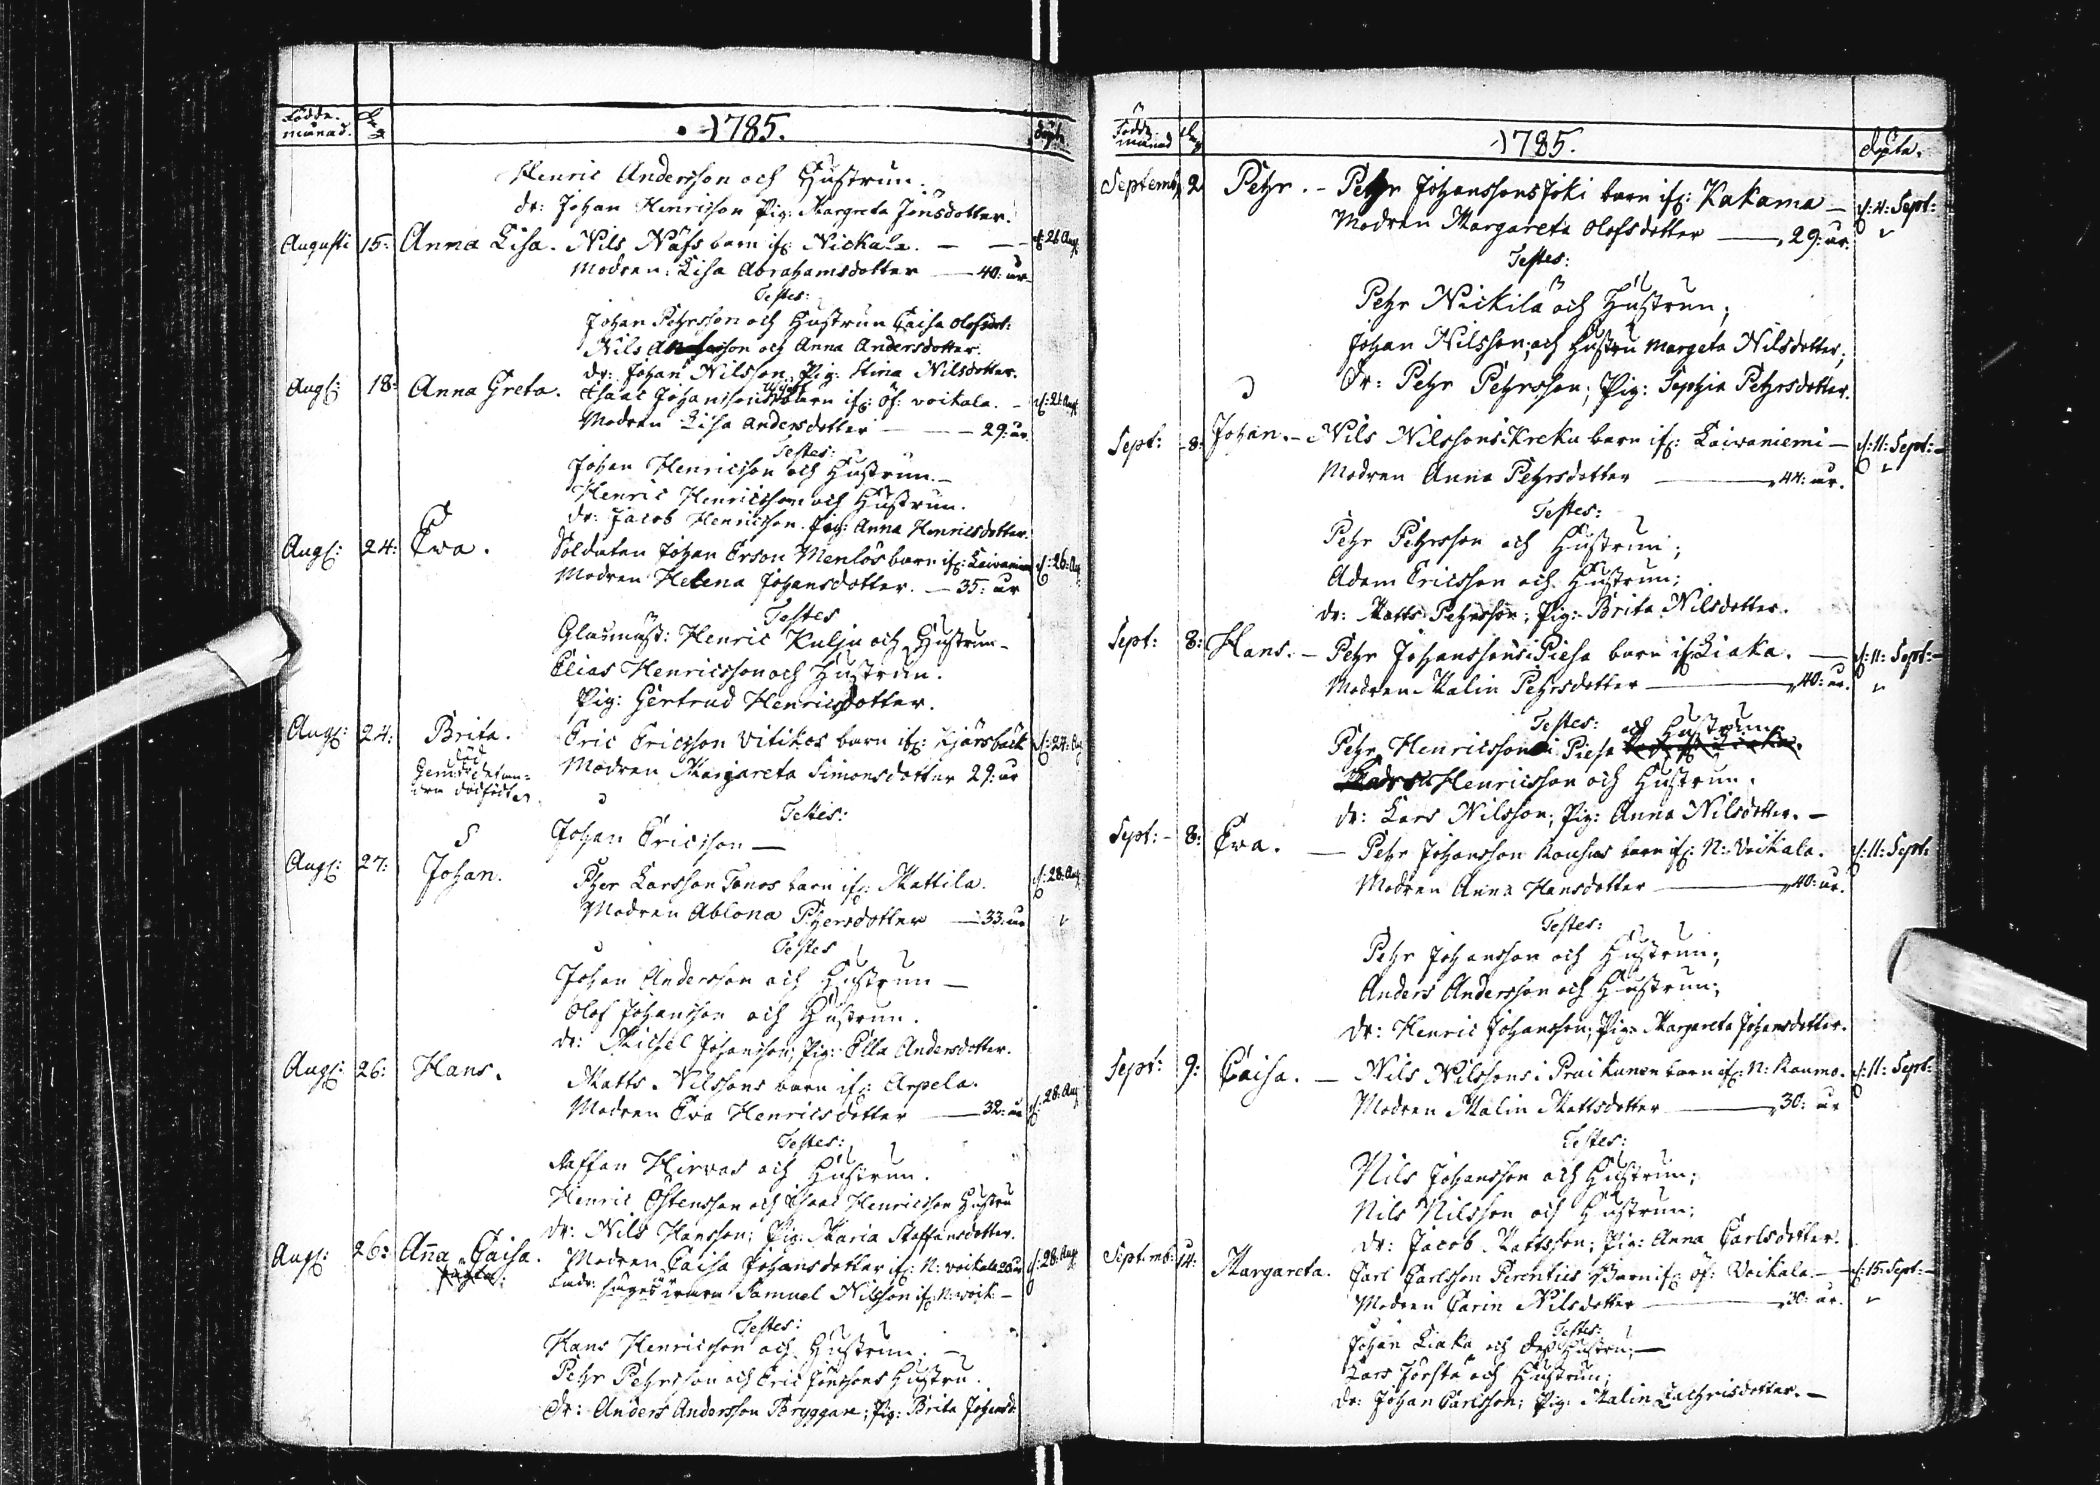 Födde månad. dag 1785. döpte
Henric Andersson och Hustrun.
dr: Johan Henricsson Pig: Margreta Jönsdotter.
Augusti 15: Anna Lisa. Nils Näfs barn if: Nickala. d: 21 Aug
Modren: Lisa Abrahamsdotter — 40: år
Testes:
Johan Pehrsson och Hustrun Caisa Olofsdot:
Nils Andersson och Anna Andersdotter.
dr: Johan Nilsson, Pig: Stina Nilsdotter.
Aug: 18: Anna Greta. Isaac Johanssons barn if: öf: voikala. d: 21 Aug
Modren Lisa Andersdotter — 29: år
Testes:
Johan Henricsson och Hustrun.
Henric Henricsson och Hustrun.
dr: Jacob Henricsson. Pig: Anna Henricsdotter.
Aug: 24: Eva. Soldaten Johan Erson Menlös barn if: Laivaniemi d: 26: Aug
Modren Helena Johansdotter. — 35: år
Testes
Glasmäst: Henric Kulju och Hustrun
Elias Henricsson och Hustrun.
Pig: Gertrud Henricsdotter.
Aug: 24: Brita. Eric Ericsson Vitikos barn if: Kjärsbäck d: 24: Aug
död Modren Margareta Simonsdotter 29: år
Testes:
Johan Ericsson —
Aug: 27: Johan. Pher Larsson Tanos barn if: Mattila. d: 28: Aug
Modren Ablona Phersdotter — 33: år
Testes
Johan Andersson och Hustrun —
Olof Johansson och Hustrun.
dr: Michel Johansson; Pig: Ella Andersdotter.
Aug: 26: Hans. Matts Nilssons barn if: Arpela. d: 28: Aug
Modren Eva Henricsdotter — 32: år
Testes:
Staffan Hirvas och Hustrun.
Henric Östensson och Isaac Henricsson Hustru
dr: Nils Hansson; Pig: Maria Staffansdotter.
Aug: 26: Anna Caisa. Modren Caisa Johansdotter if: N: voikala 26 år d: 28: Aug
oägta: Samuel Nilsson if: N: voik: —
Testes:
Hans Henricsson och Hustrun. —
Pehr Pehrsson och Eric Jönssons Hustru.
Dr: Anders Andersson Bryggare; Pig: Brita Johansd:
Födde månad dag 1785. döpta.
Septemb: 2 Pehr. — Pehr Johanssons Joki barn if: Kakama — d: 4: Sept:
Modren Margareta Olofsdotter — 29: år
Testes:
Pehr Nickilä och Hustrun;
Johan Nilsson; och Hustru Margeta Nilsdotter;
Dr: Pehr Pehrsson; Pig: Sophia Pehrsdotter.
Sept: 8: Johan. — Nils Nilssons Kreku barn if: Laivaniemi — d: 11: Sept:
Modren Anna Pehrsdotter — 44: år.
Testes:
Pehr Pehrsson och Hustrun;
Adam Ericsson och Hustrun;
dr: Matts Pehrsson; Pig: Brita Nilsdotter.
Sept: 8: Hans. — Pehr Johanssons Piesa barn if: Liaka. — d: 11: Sept:
Modren Malin Pehrsdotter — 40: år.
Testes:
Pehr Henricsson Piesa och Hustrun
Henricsson och Hustrun.
dr: Lars Nilsson; Pig: Anna Nilsdotter. —
Sept: — 8: Eva. — Pehr Johansson Kouhus barn if: N: Voikala. d: 11: Sept:
Modren Anna Hansdotter — 40: år.
Testes:
Pehr Johansson och Hustrun;
Anders Andersson och Hustrun;
dr: Henric Johansson; Pig: Margareta Johansdotter.
Sept: 9: Caisa. — Nils Nilssons Praikunen barn if: N: Raumo. d: 11: Sept:
Modren Malin Mattsdotter — 30: år
Testes:
Nils Johansson och Hustrun;
Nils Nilsson och Hustrun;
dr: Jacob Mattsson; Pig: Anna Carlsdotter.
Septemb: 14: Margareta. Carl Carlsson Perenties Barn if: öf: Voikala — d: 15: Sept:
Modren Carin Nilsdotter — 30: år.
Testes:
Johan Liaka och dess Hustru; —
Lars Jörsta och Hustrun;
dr: Johan Carlsson; Pig: Malin Zachrisdotter. —